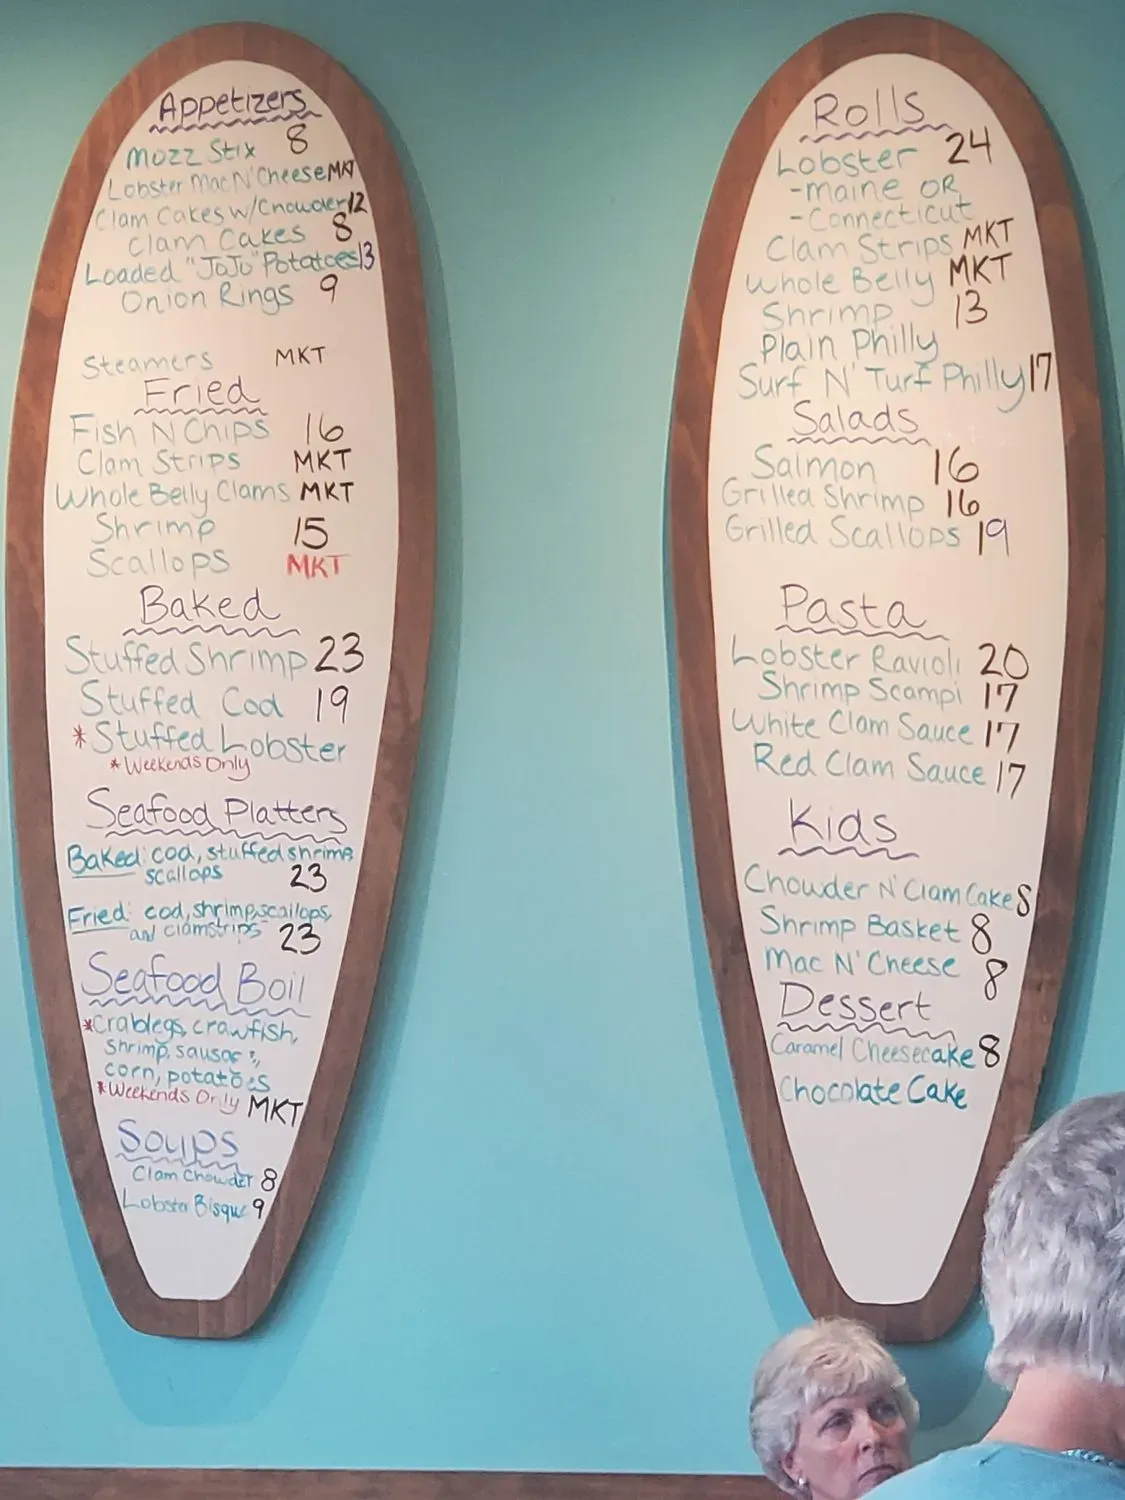 Appetizers
Mozz Stix 8
Lobster Mac N' Cheese MKT
Clam Cakes w/Chowder 12
Clam Cakes 8
Loaded "JoJo" Potatoes 13
Onion Rings 9
Steamers MKT
Fried
Fish N Chips 16
Clam Strips MKT
Whole Belly Clams MKT
Shrimp 15
Scallops MKT
Baked
Stuffed Shrimp 23
Stuffed Cod 19
*Stuffed Lobster
*Weekends Only
Seafood Platters
Baked: cod, stuffed shrimp,
scallops 23
Fried: cod, shrimp, scallops,
and clamstrips 23
Seafood Boil
*Crablegs, crawfish,
shrimp,
corn, potatoes
*Weekends Only MKT
Soups
Clam Chowder 8
Lobster Bisque 9
Rolls
Lobster 24
-Maine OR
-Connecticut
Clam Strips MKT
Whole Belly MKT
Shrimp 13
Plain Philly
Surf N' Turf Philly 17
Salads
Salmon 16
Grilled Shrimp 16
Grilled Scallops 19
Pasta
Lobster Ravioli 20
Shrimp Scampi 17
White Clam Sauce 17
Red Clam Sauce 17
Kids
Chowder N' Clam Cake 8
Shrimp Basket 8
Mac N' Cheese 8
Dessert
Caramel Cheesecake 8
Chocolate Cake